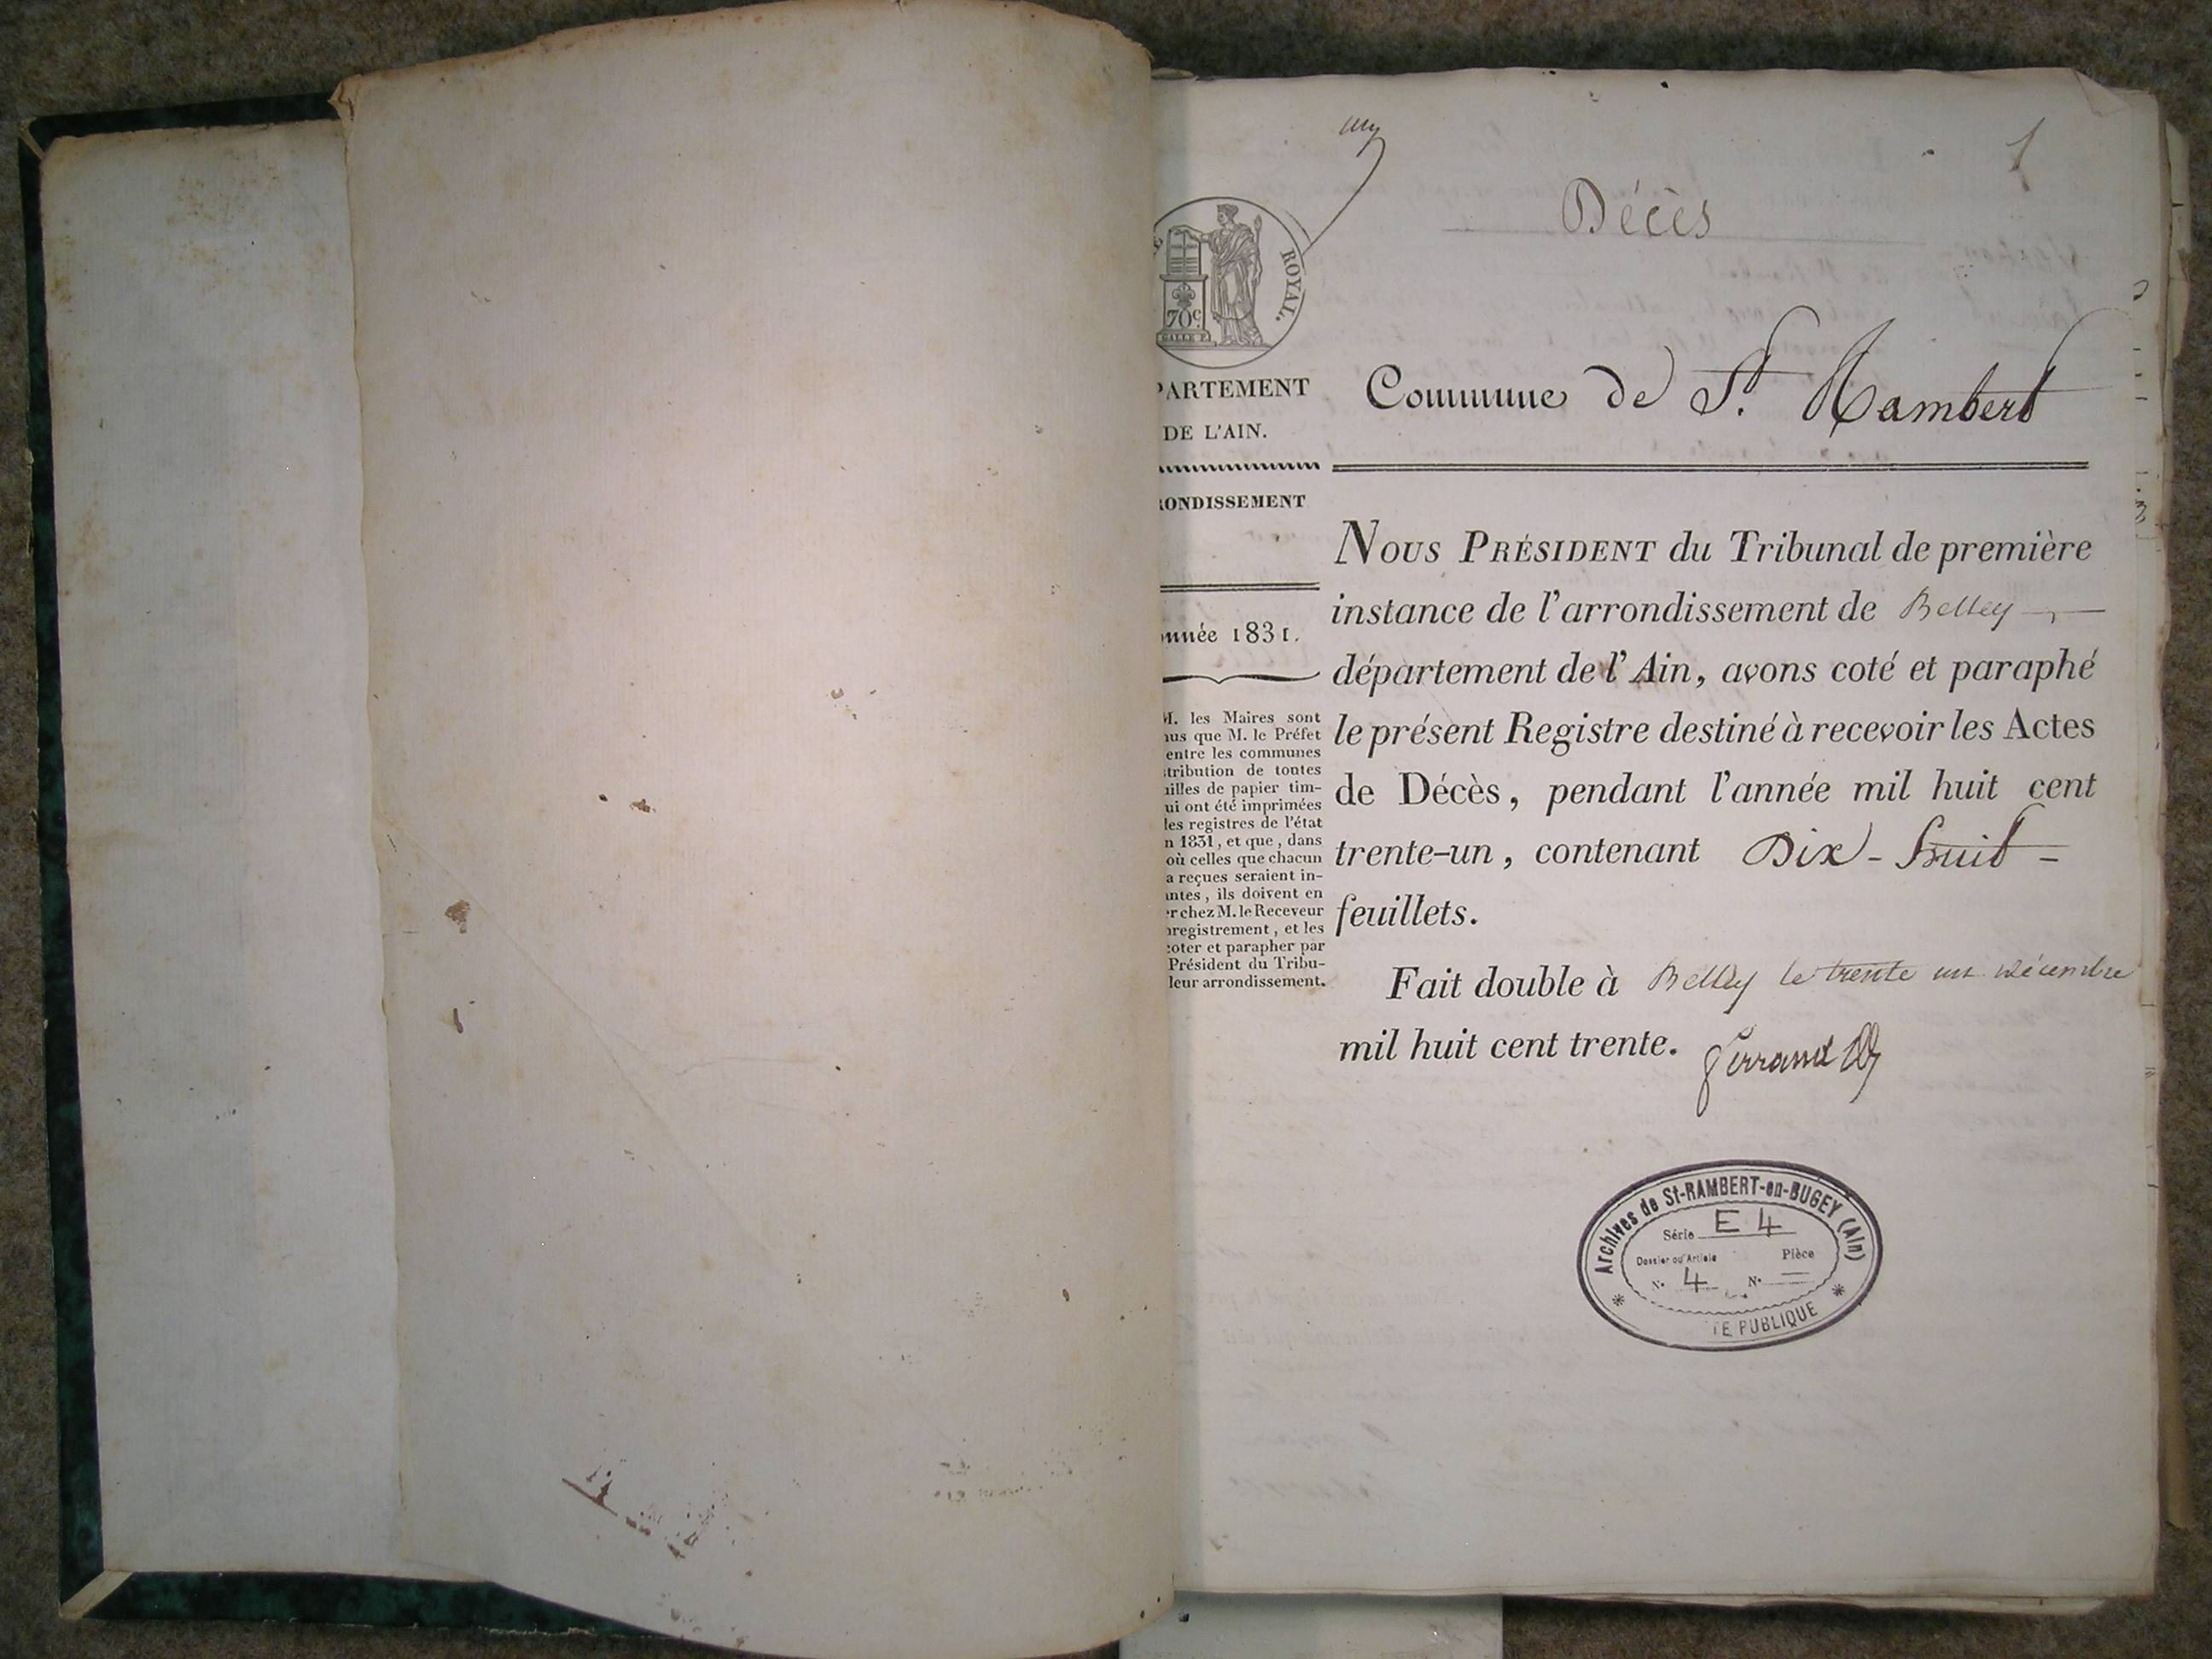 1
Décès
ROYAL.
70c.
GALLE F.
PARTEMENT
DE L'AIN.
Commune de St. Rambert
RONDISSEMENT
nnée 1831.
M. les Maires sont
nus que M. le Préfet
entre les communes
tribution de toutes
uilles de papier tim-
ui ont été imprimées
les registres de l'état
n 1831, et que, dans
où celles que chacun
a reçues seraient in-
antes, ils doivent en
er chez M. le Receveur
nregistrement, et les
coter et parapher par
Président du Tribu-
leur arrondissement.
NOUS PRÉSIDENT du Tribunal de première
instance de l'arrondissement de Belley
département de l'Ain, avons coté et paraphé
le présent Registre destiné à recevoir les Actes
de Décès, pendant l'année mil huit cent
trente-un, contenant Dix-huit-
feuillets.
Fait double à Belley le trente un Décembre
mil huit cent trente.
Archives de St-RAMBERT-en-BUGEY (Ain)
Série E 4
Dossier ou Article Pièce
N° 4 N° —
TE PUBLIQUE